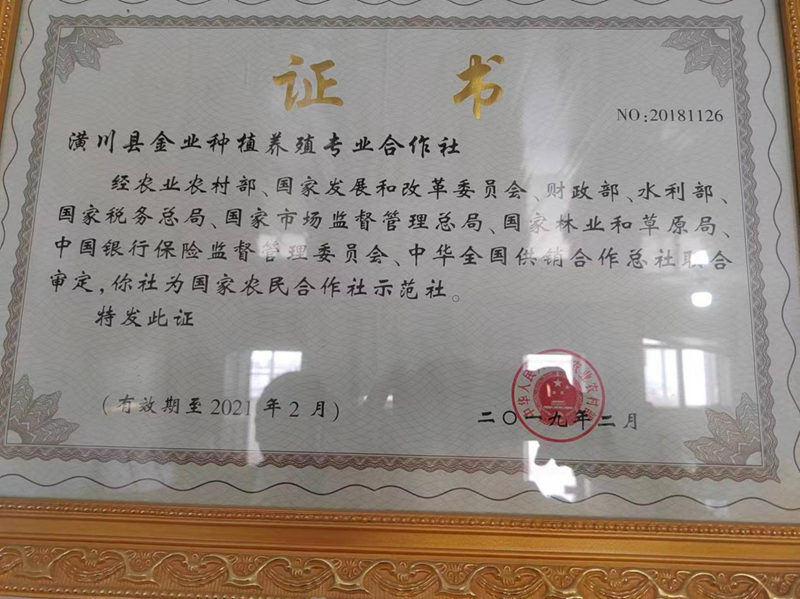 证书
NO:20181126
潢川县金业种植养殖专业合作社
经农业农村部、国家发展和改革委员会、财政部、水利部、
国家税务总局、国家市场监督管理总局、国家林业和草原局、
中国银行保险监督管理委员会、中华全国供销合作总社联合
审定,你社为国家农民合作社示范社。
特发此证
(有效期至2021年2月)
二〇一九年二月
中华人民
农业农村部